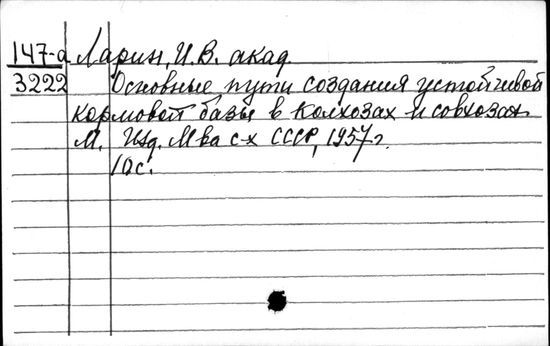 147-а Ларин, И.В. акад.
3222 Основные пути создания устойчивой
кормовой базы в колхозах и совхозах
М. Изд. М-ва с-х СССР, 1957 г.
10 с.